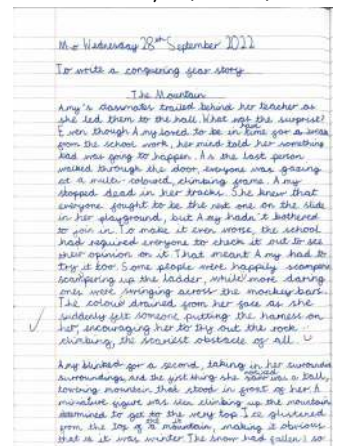 M.o Wednesday 28th September 2022
To write a conquering fear story
The Mountain
Amy's classmates trailed behind her teacher as
she led them to the hall. What was the surprise?
Even though Amy loved to be in time for a break
from the school work, her mind told her something
bad was going to happen. As the last person
walked through the door, everyone was gazing
at a multi-coloured, climbing frame. Amy
stopped dead in her tracks. She knew that
everyone fought to be the next one on the slide
in her playground, but Amy hadn't bothered
to join in. To make it even worse, the school
had required everyone to check it out to see
their opinion on it. That meant Amy had to
try it too. Some people were happily
scampering up the ladder, while more daring
ones were swinging across the monkey bars.
The colour drained from her face as she
suddenly felt someone putting the harness on
her, encouraging her to try out the rock
climbing, the scariest obstacle of all.
Amy blinked for a second, taking in her
surroundings, and the first thing she noticed was a tall,
towering mountain that stood in front of her. A
miniature figure was seen climbing up the mountain
determined to get to the very top. Ice glistened
from the top of the mountain, making it obvious
that it was winter. The snow had fallen so